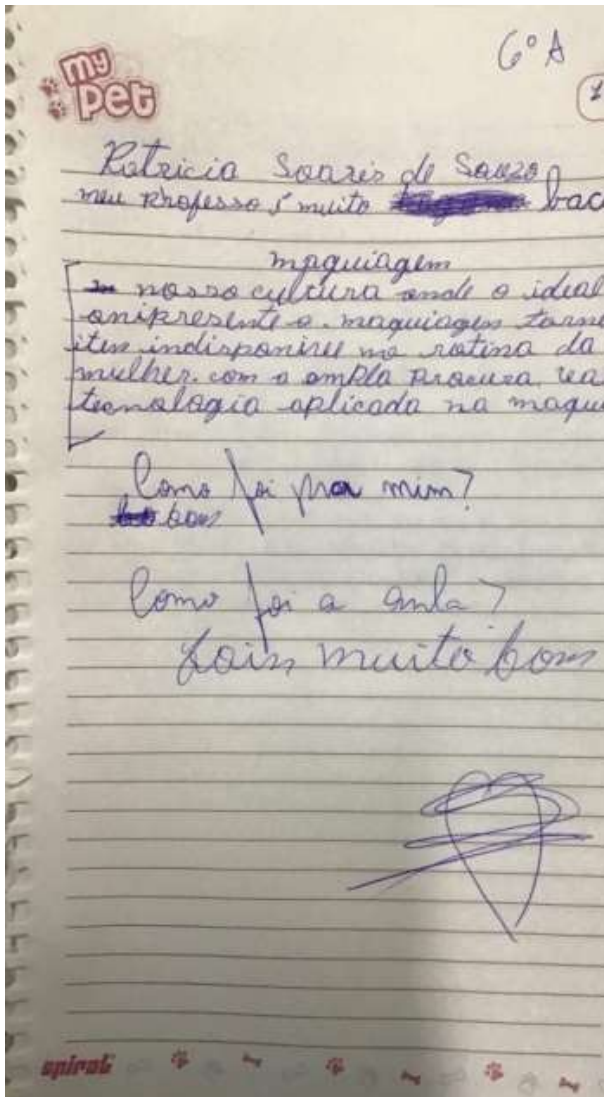 my pet
6º A
1
Patricia Soares de Souza
meu Professo é muito bac
maquiagem
nosso cultura onde o ideal
onipresente a maquiagem torne
item indisponivel na rotina da
mulher. com a ampla Procura rea
tecnologia aplicada na maqui
Como foi pra mim?
bom
Como foi a aula?
foim muito bom
spiral